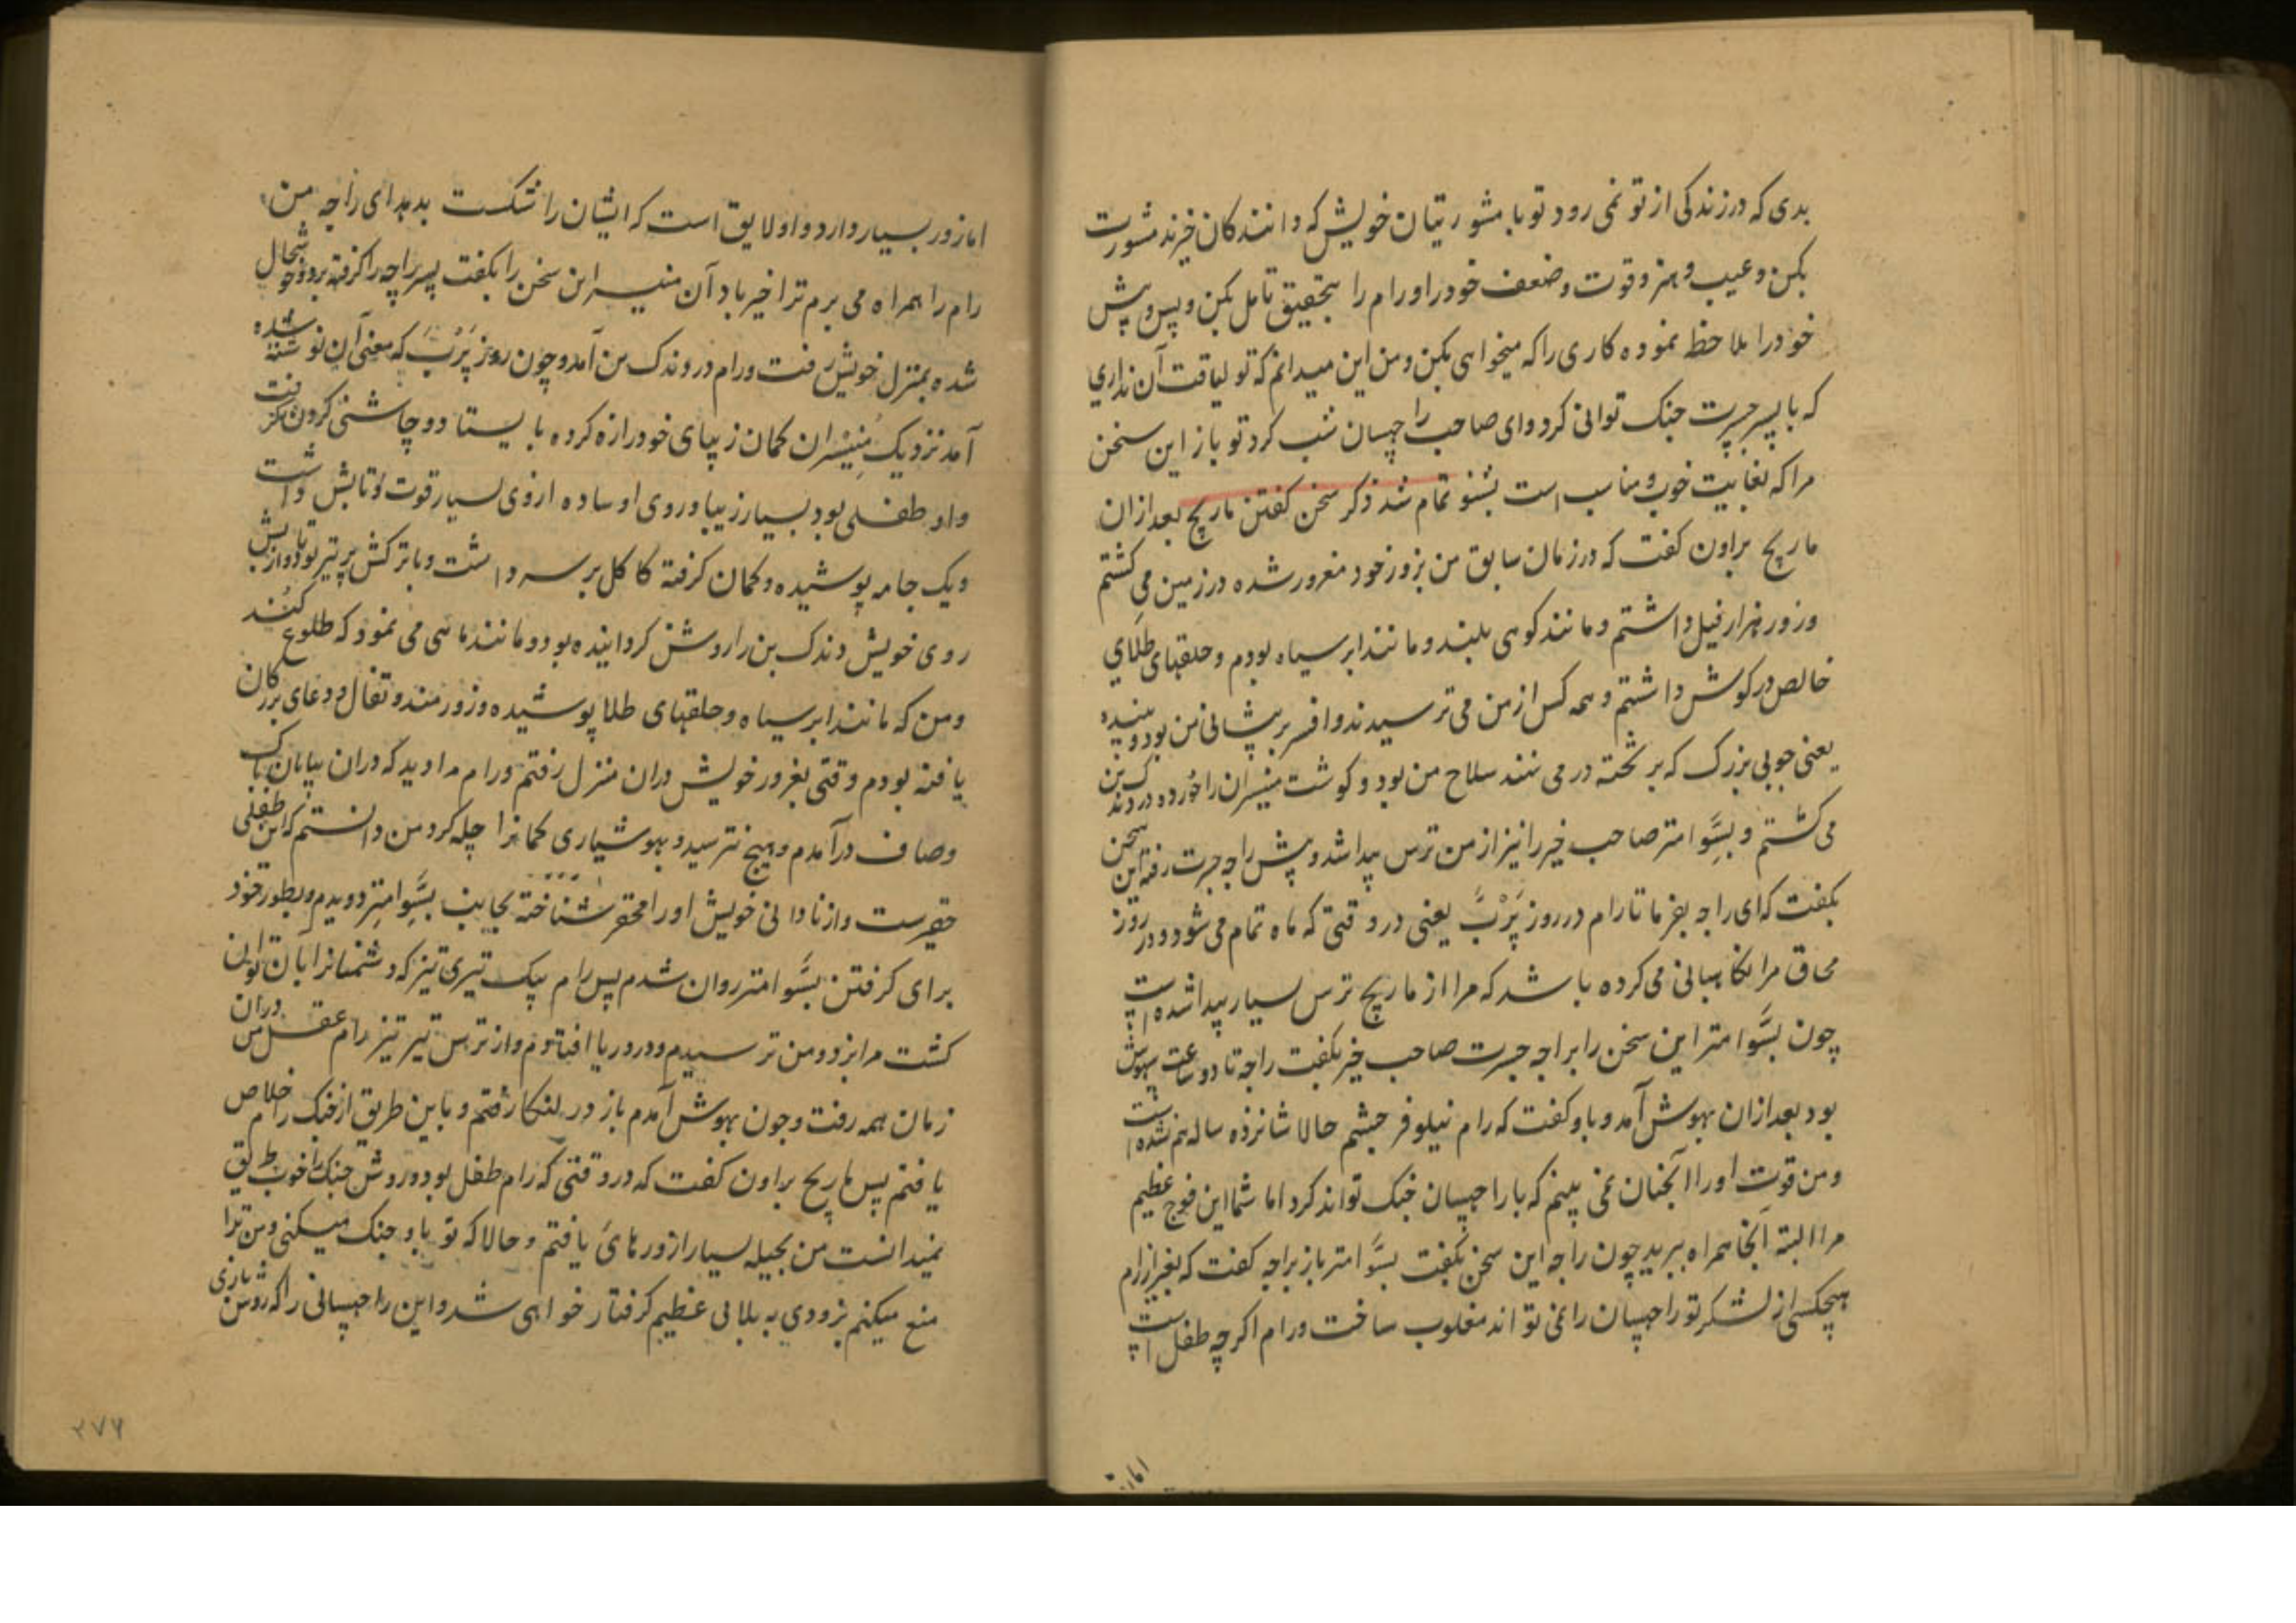 بدی که در زندکی از تو نمی رود تو با مشورتیان خویش که دانندکان خیرند مشورت
بکن و عیب و هنر و قوت و ضعف خود را و رام را بتحقیق تامل بکن و پس و پیش
خود را ملاحظه نموده کاری را که میخواهی بکن و من این میدانم که تو لیاقت آن نداری
که با پسر جسرت جنک توانی کرد و ای صاحب راچهسان شب کرد تو باز این سخن
مرا که بغایت خوب و مناسب است بشنو تمام شد ذکر سخن کفتن ماریچ بعد ازان
ماریچ براون کفت که در زمان سابق من بزور خود مغرور شده در زمین می کشتم
و زور هزار فیل داشتم و مانند کوهی بلند و مانند ابر سیاه بودم و حلقهای طلای
خالص در کوش داشتم و همه کس از من می ترسیدند و افسر بر پیشانی من بود و
یعنی چوبی بزرک که بر تخته در می نند سلاح من بود و کوشت منیسران را خورده در دندک بن
می کشتم و بسّوامتر صاحب خیر را نیز از من ترس پیدا شد و پیش راجه جسرت رفته این سخن
بکفت که ای راجه بفرما تا رام در روز پَرْبّ یعنی در وقتی که ماه تمام می شود و در روز
محاق مرا نکاهبانی می کرده باشد که مرا از ماریچ ترس بسیار پیدا شده است
چون بسّوامتر این سخن را براجه جسرت صاحب خیر بکفت راجه تا دو ساعت بیهوش
بود بعد ازان بهوش آمد و باو کفت که رام نیلوفر چشم حالا شانزده ساله هم نشده است
و من قوت او را آنچنان نمی بینم که با راچهسان جنک تواند کرد اما شما این فوج عظیم
مرا البته آنجا همراه ببرید چون راجه این سخن بکفت بسّوامتر باز براجه کفت که بغیر از رام
هیچکس از لشکر تو راچهسان را نمی تواند مغلوب ساخت و رام اکرچه طفل است
اما زور
اما زور بسیار دارد و او لایق است که ایشان را شکست بدهد ای راجه من
رام را همراه می برم ترا خیر باد آن منیسر این سخن را بکفت پسر راجه را کرفته برد و خوشحال
شده بمنزل خویش رفت و رام در دندک بن آمد و چون روز پَرْبّ که معنی آن نوشته شده
آمد نزدیک مُنیسران کمان زیبای خود را زه کرده بایستاد و چاشنی کردن کرفت
و او طفلی بود بسیار زیبا و روی او ساده ازوی بسیار قوت و تابش داشت
و یک جامه پوشیده و کمان کرفته کاکل بر سر داشت و با ترکش پر تیر بود و از تابش
روی خویش دندک بن را روشن کردانیده بود و مانند ماهی می نمود که طلوع کند
و من که مانند ابر سیاه و حلقهای طلا پوشیده و زورمند و تفال و دعای بزرکان
یافته بودم وقتی بغرور خویش دران منزل رفتم و رام مرا دید که دران بیابان
و صاف درآمدم و هیچ نترسید و بهوشیاری کمانرا چله کرد من دانستم که این طفلی
حقیرست و از نادانی خویش او را محقر شناخته بجانب بسّوامتر دویدم و بطور خود
برای کرفتن بسّوامتر روان شدم پس رام بیک تیری تیز که دشمنانرا بآن توانی
کشت مرا بزد و من ترسیدم و در دریا افتادم و از ترس تیر تیز رام عقل من دران
زمان همه رفت و چون بهوش آمدم باز در لنکا رفتم و باین طریق از جنک رام خلاص
یافتم پس ماریچ براون کفت که در وقتی که رام طفل بود و روش جنک را خوب
نمیدانست من بحیله بسیار ازو رهائی یافتم و حالا که تو باو جنک میکنی و من ترا
منع میکنم بزودی به بلائی عظیم کرفتار خواهی شد و این راچهسانی را که روش بازی
۲۷۶